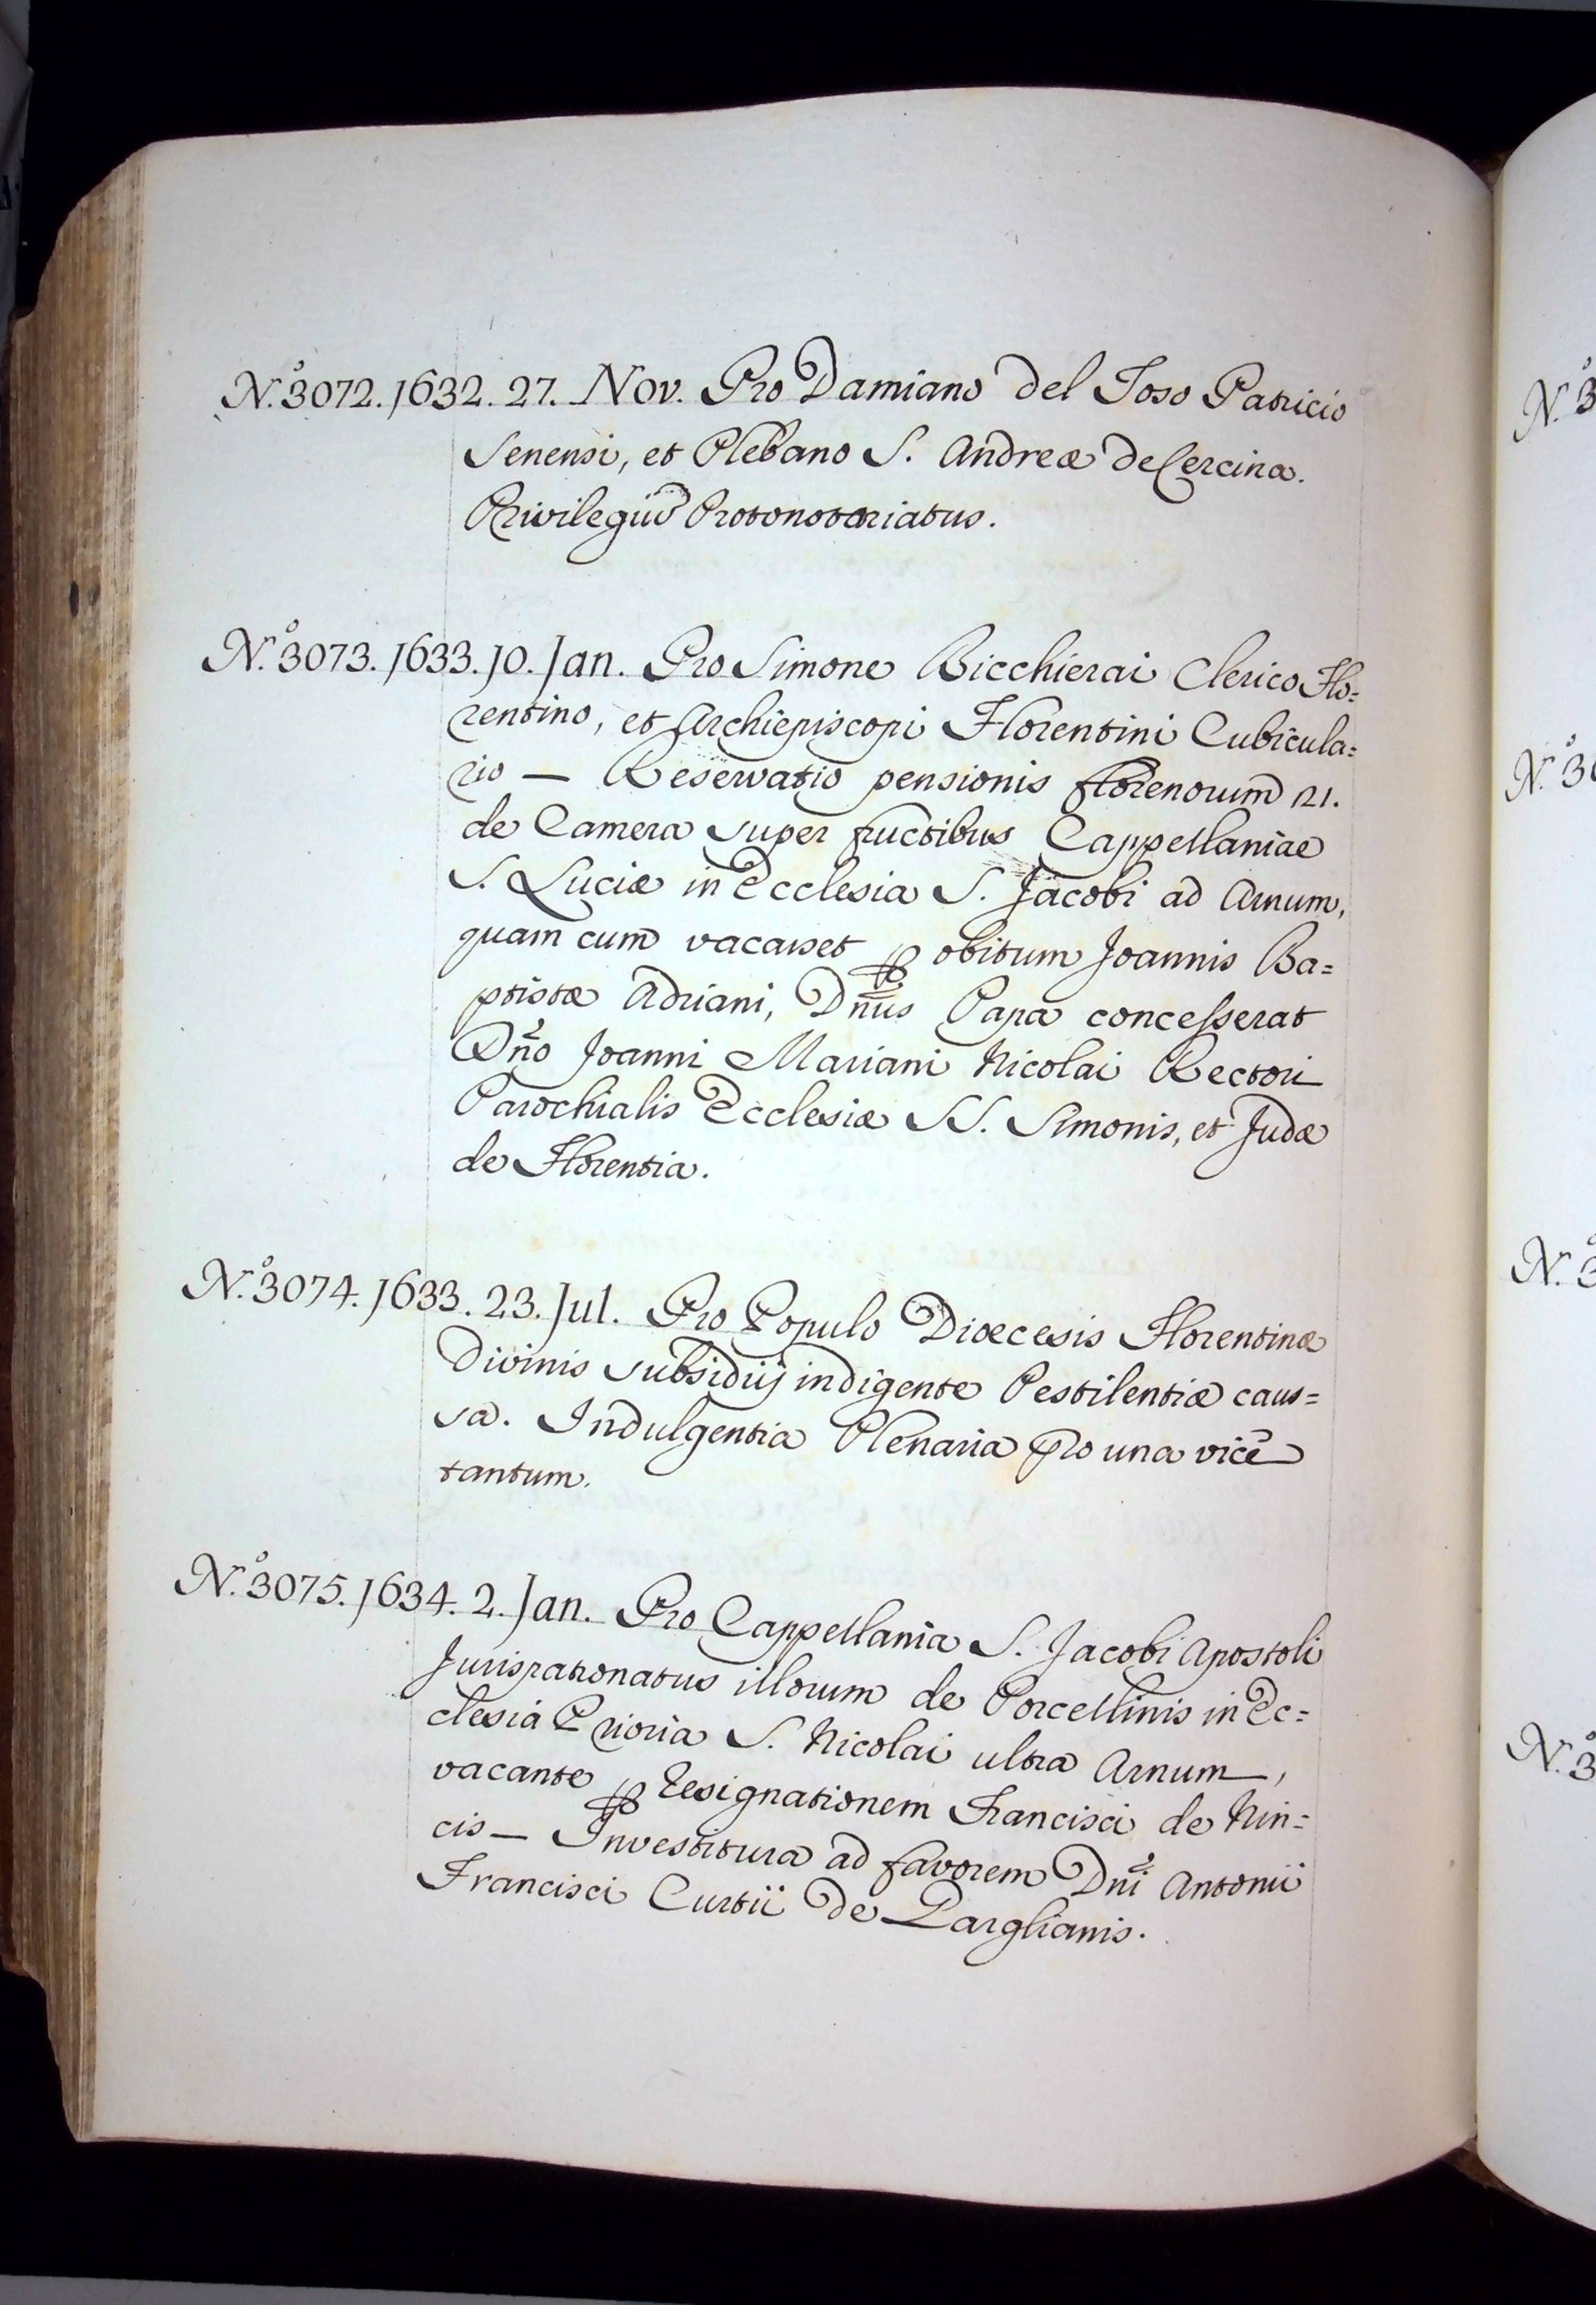 N.° 3072. 1632. 27. Nov. Pro Damiano del Toso Patricio
Senensi, et Plebano S. Andreæ de Cercina.
Privilegiū Protonotariatus.
N.° 3073. 1633. 10. Jan. Pro Simone Bicchierai Clerico Flo=
rentino, et Archiepiscopi Florentini Cubicula=
rio — Reservatio pensionis florenorum 21.
de Camera super fructibus Cappellaniae
S. Luciæ in Ecclesia S. Jacobi ad Arnum,
quam cum vacasset ꝑ obitum Joannis Ba=
ptistæ Adriani, Dñus Papa concesserat
Dño Joanni Mariani Nicolai Rectori
Parochialis Ecclesiæ SS. Simonis, et Judæ
de Florentia.
N.° 3074. 1633. 23. Jul. Pro Populo Diœcesis Florentinæ
Divinis subsidiij indigente Pestilentiæ caus=
sa. Indulgentia Plenaria pro una vicē
tantum.
N.° 3075. 1634. 2. Jan. Pro Cappellania S. Jacobi Apostoli
Jurispatronatus illorum de Porcellinis in Ec=
clesia Prioria S. Nicolai ultra Arnum,
vacante ꝑ resignationem Francisci de Nin=
cis — Investitura ad favorem Dñi Antonii
Francisci Curtii de Parglianis.